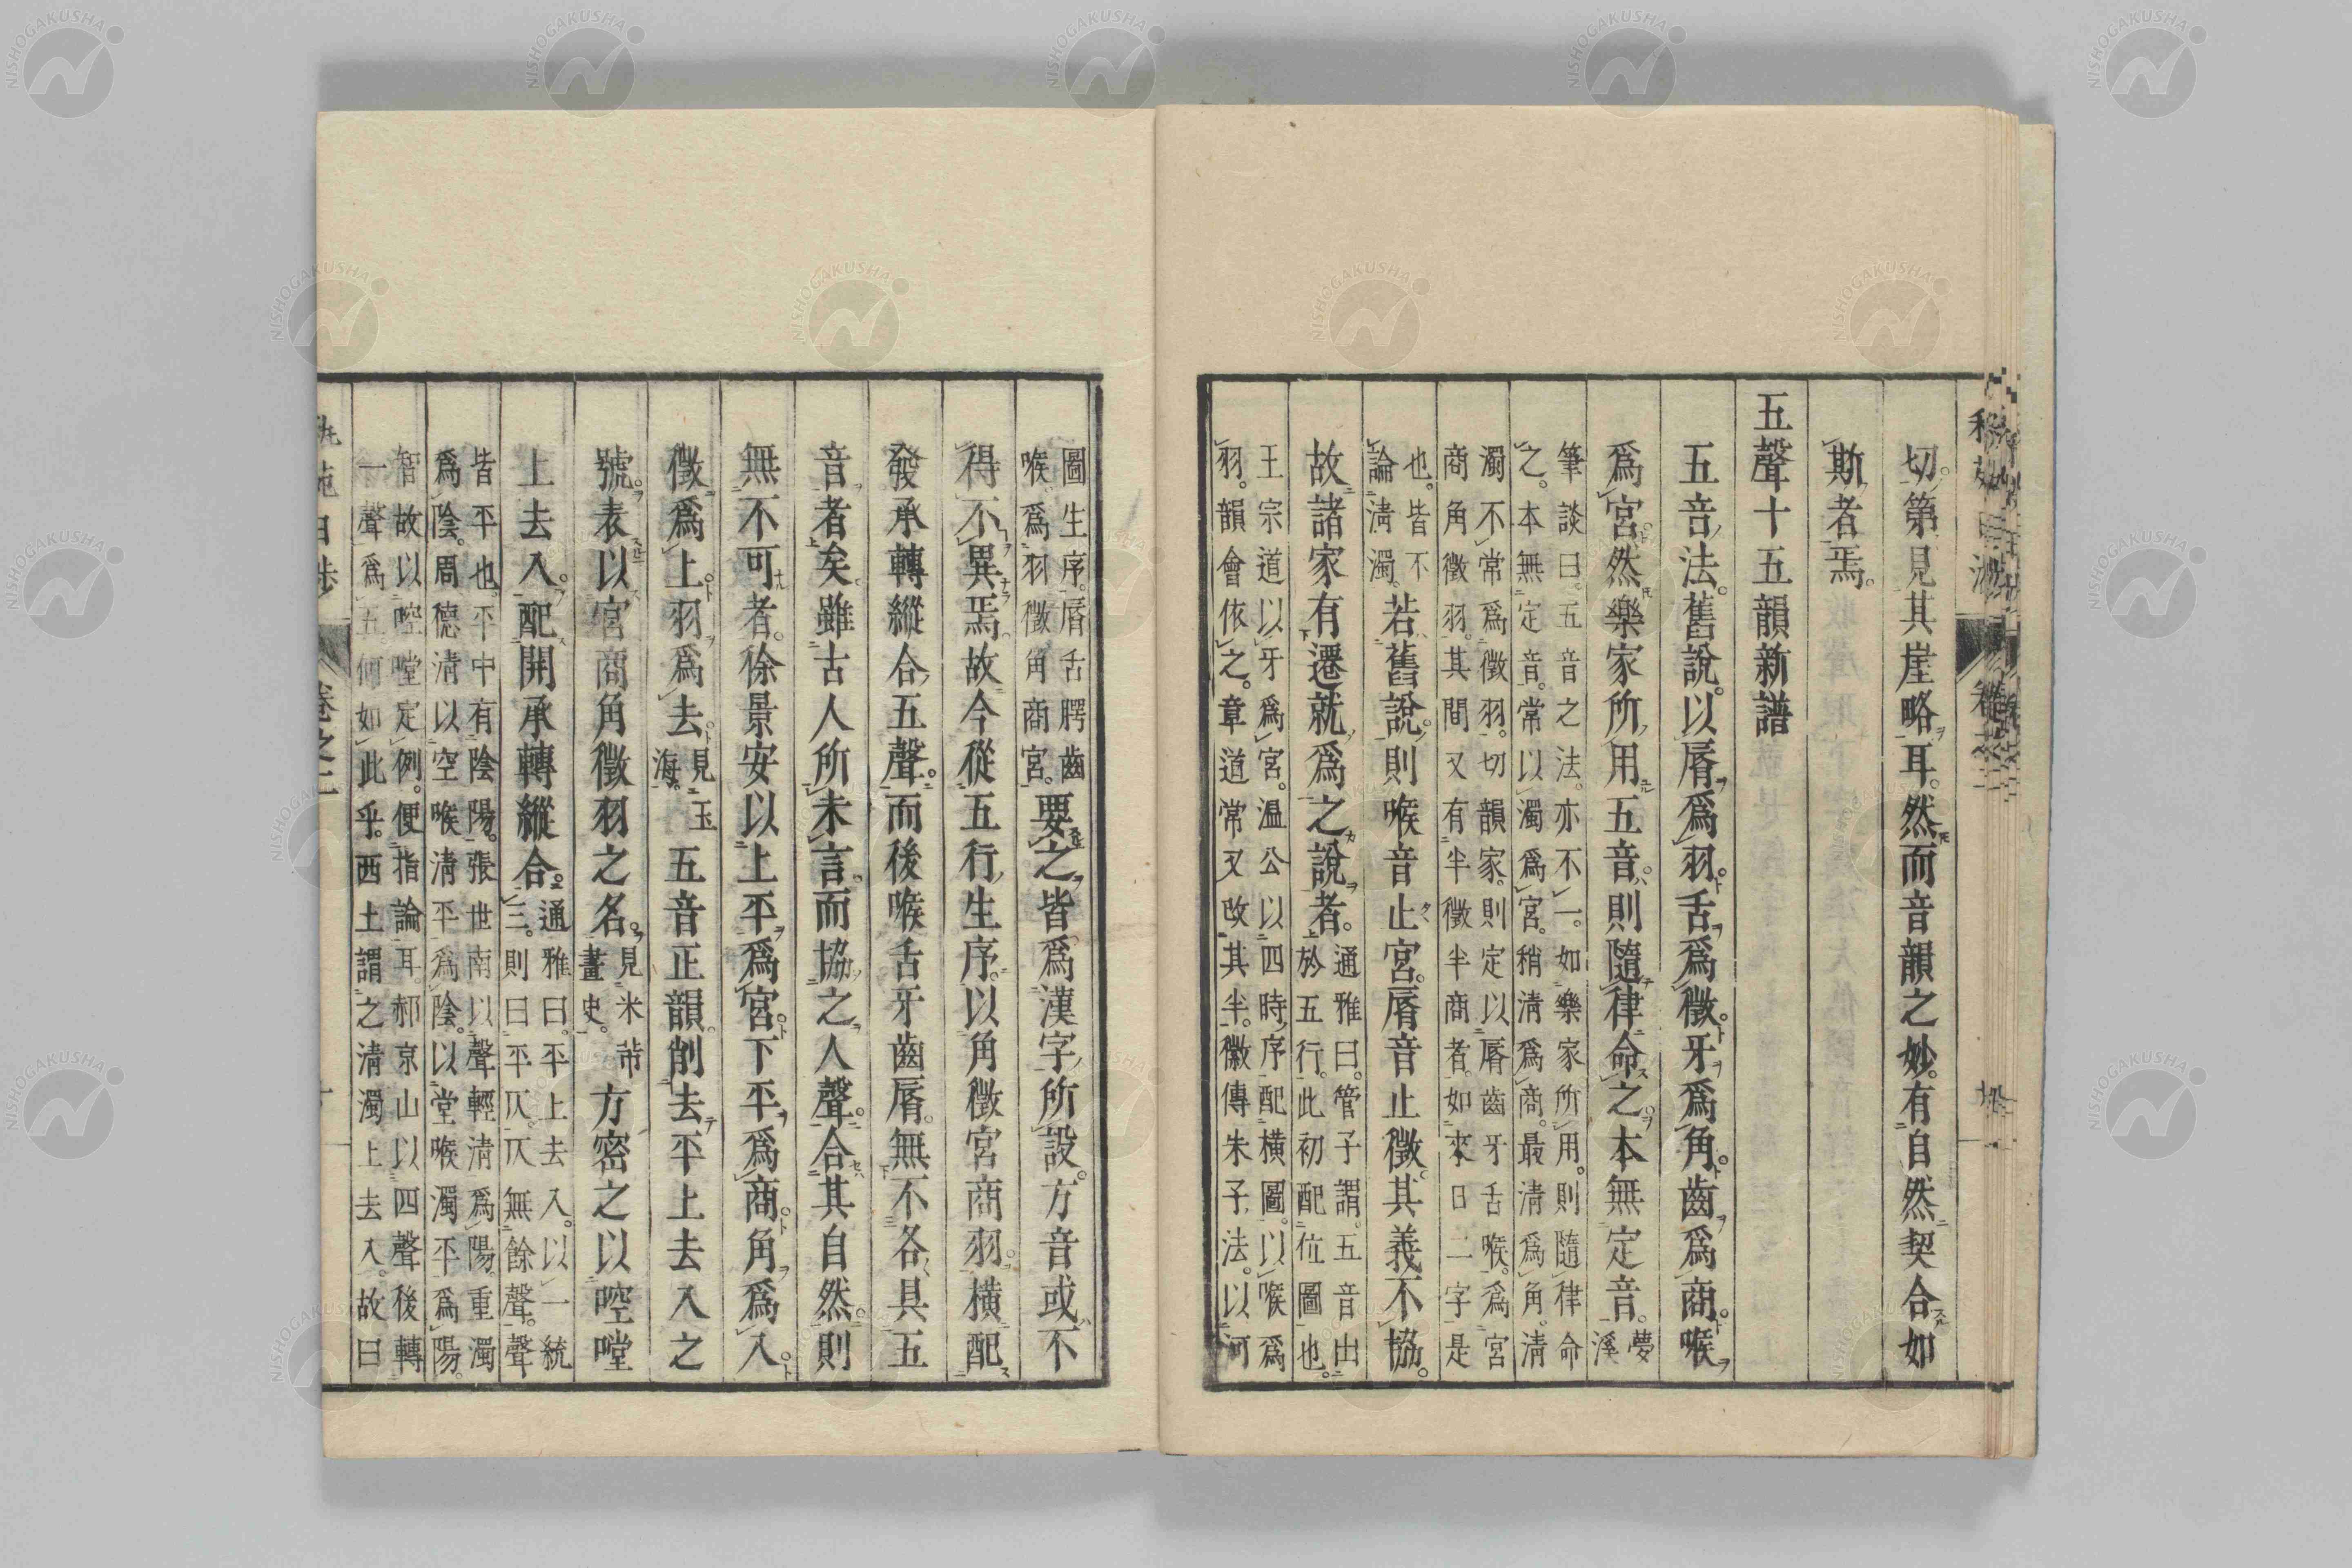 切。第見其崖略耳。然而音韻之妙。有自然契合如
斯者焉。
五聲十五韻新譜
五音法。舊說。以脣爲羽。舌爲徵。牙爲角。齒爲商。喉
爲宮。然樂家所用五音。則隨律命之。本無定音。夢溪
筆談曰。五音之法。亦不一。如樂家所用。則隨律命
之。本無定音。常以濁爲宮。稍清爲商。最清爲角。清
濁不常爲徵羽。切韻家。則定以脣齒牙舌喉。爲宮
商角徵羽。其間又有半徵半商者。如來日二字是
也。皆不
論清濁。
若舊說。則喉音止宮。脣音止徵。其義不協。
故諸家有遷就爲之說者。
通雅曰。管子謂。五音出
於五行。此初配位圖也。
王宗道以牙爲宮。溫公以四時序配橫圖。以喉爲
羽。韻會依之。章道常又改其半。徽傳朱子法。以河
圖生序。脣舌腭齒
喉爲羽徵角商宮。
要之皆爲漢字所設。方音或不
得不異焉。故今從五行生序。以角徵宮商羽。橫配
發承轉縱合五聲。而後喉舌牙齒脣。無不各具五
音者矣。雖古人所未言。而協之人聲。合其自然。則
無不可者。徐景安以上平爲宮。下平爲商。角爲入
徵爲上。羽爲去。
見玉
海。
五音正韻。削去平上去入之
號。表以宮商角徵羽之名。
見米芾
畫史。
方密之以啌嘡
上去入。配開承轉縱合。
通雅曰。平上去入。以一統
三。則曰平仄。仄無餘聲。聲
皆平也。平中有陰陽。張世南以聲輕清爲陽。重濁
爲陰。周德清以空喉清平爲陰。以堂喉濁平爲陽。
智故以啌嘡定例。便指論耳。郝京山以四聲後轉
一聲爲五。何如此乎。西土謂之清濁上去入。故曰